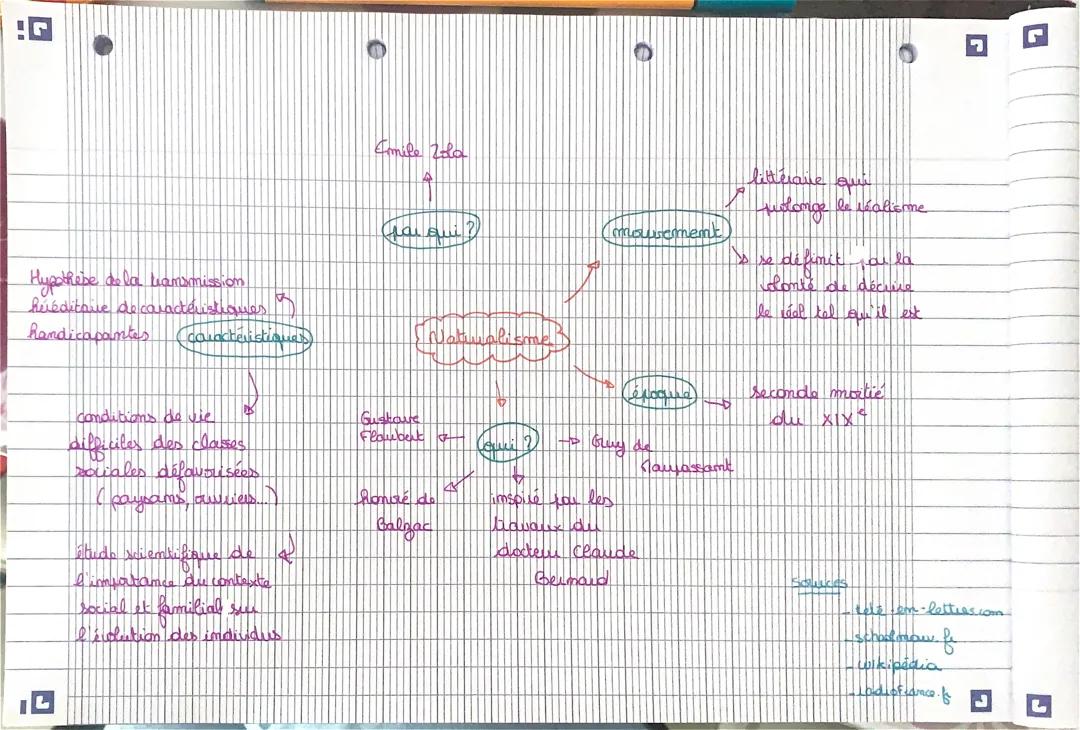 Emile Zola
par qui ?
mouvement
littéraire qui
prolonge le réalisme
se définit par la
volonté de décrire
le réel tel qu'il est
Hypothèse de la transmission
héréditaire de caractéristiques
handicapantes
caractéristiques
Naturalisme
époque
seconde moitié
du XIXe
conditions de vie
difficiles des classes
sociales défavorisées
(paysans, ouvriers...)
étude scientifique de
l'importance du contexte
social et familial sur
l'évolution des individus
qui ?
Gustave
Flaubert
Guy de
Maupassant
honoré de
Balzac
inspiré par les
travaux du
docteur Claude
Bernard
Sources
- télé-em-lettres.com
- schoolmouv.fr
- wikipédia
- radiofrance.fr